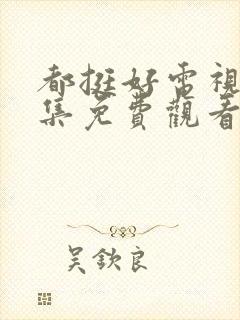 都挺好電視
集免費觀看
吳欽良